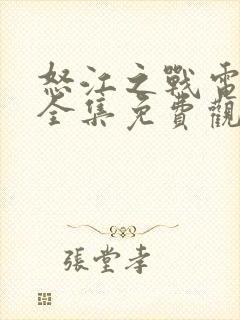 怒江之戰電
全集免費觀
張堂孝